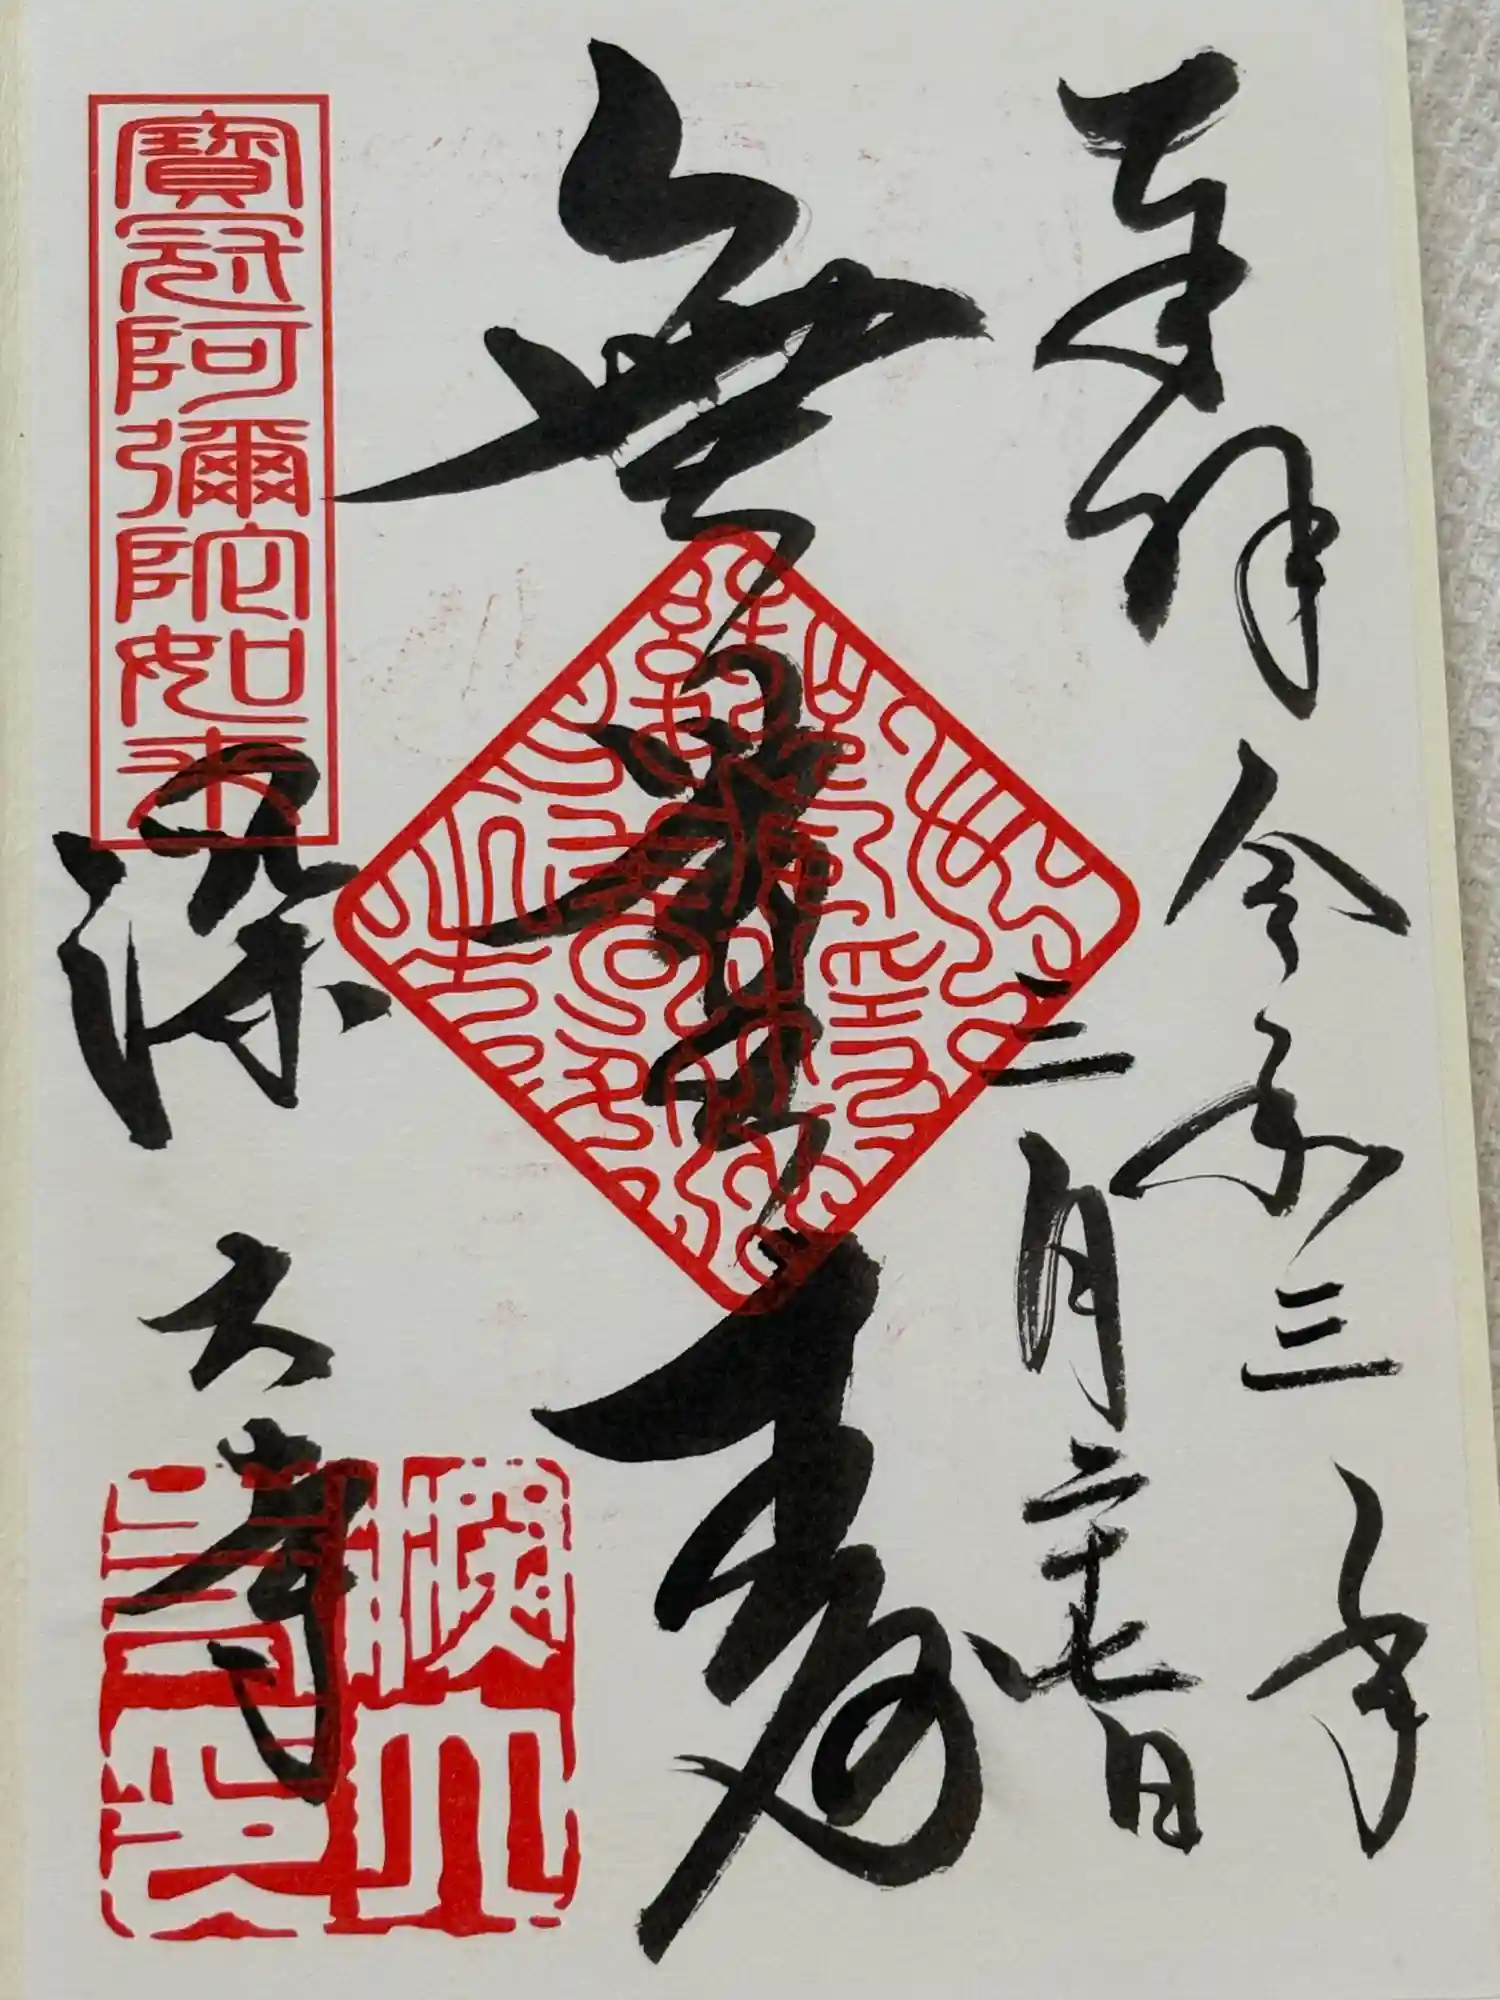 奉拝
令和三年
二月二十七日
無量寿
寶冠阿彌陀如来
深大寺
深大寺印